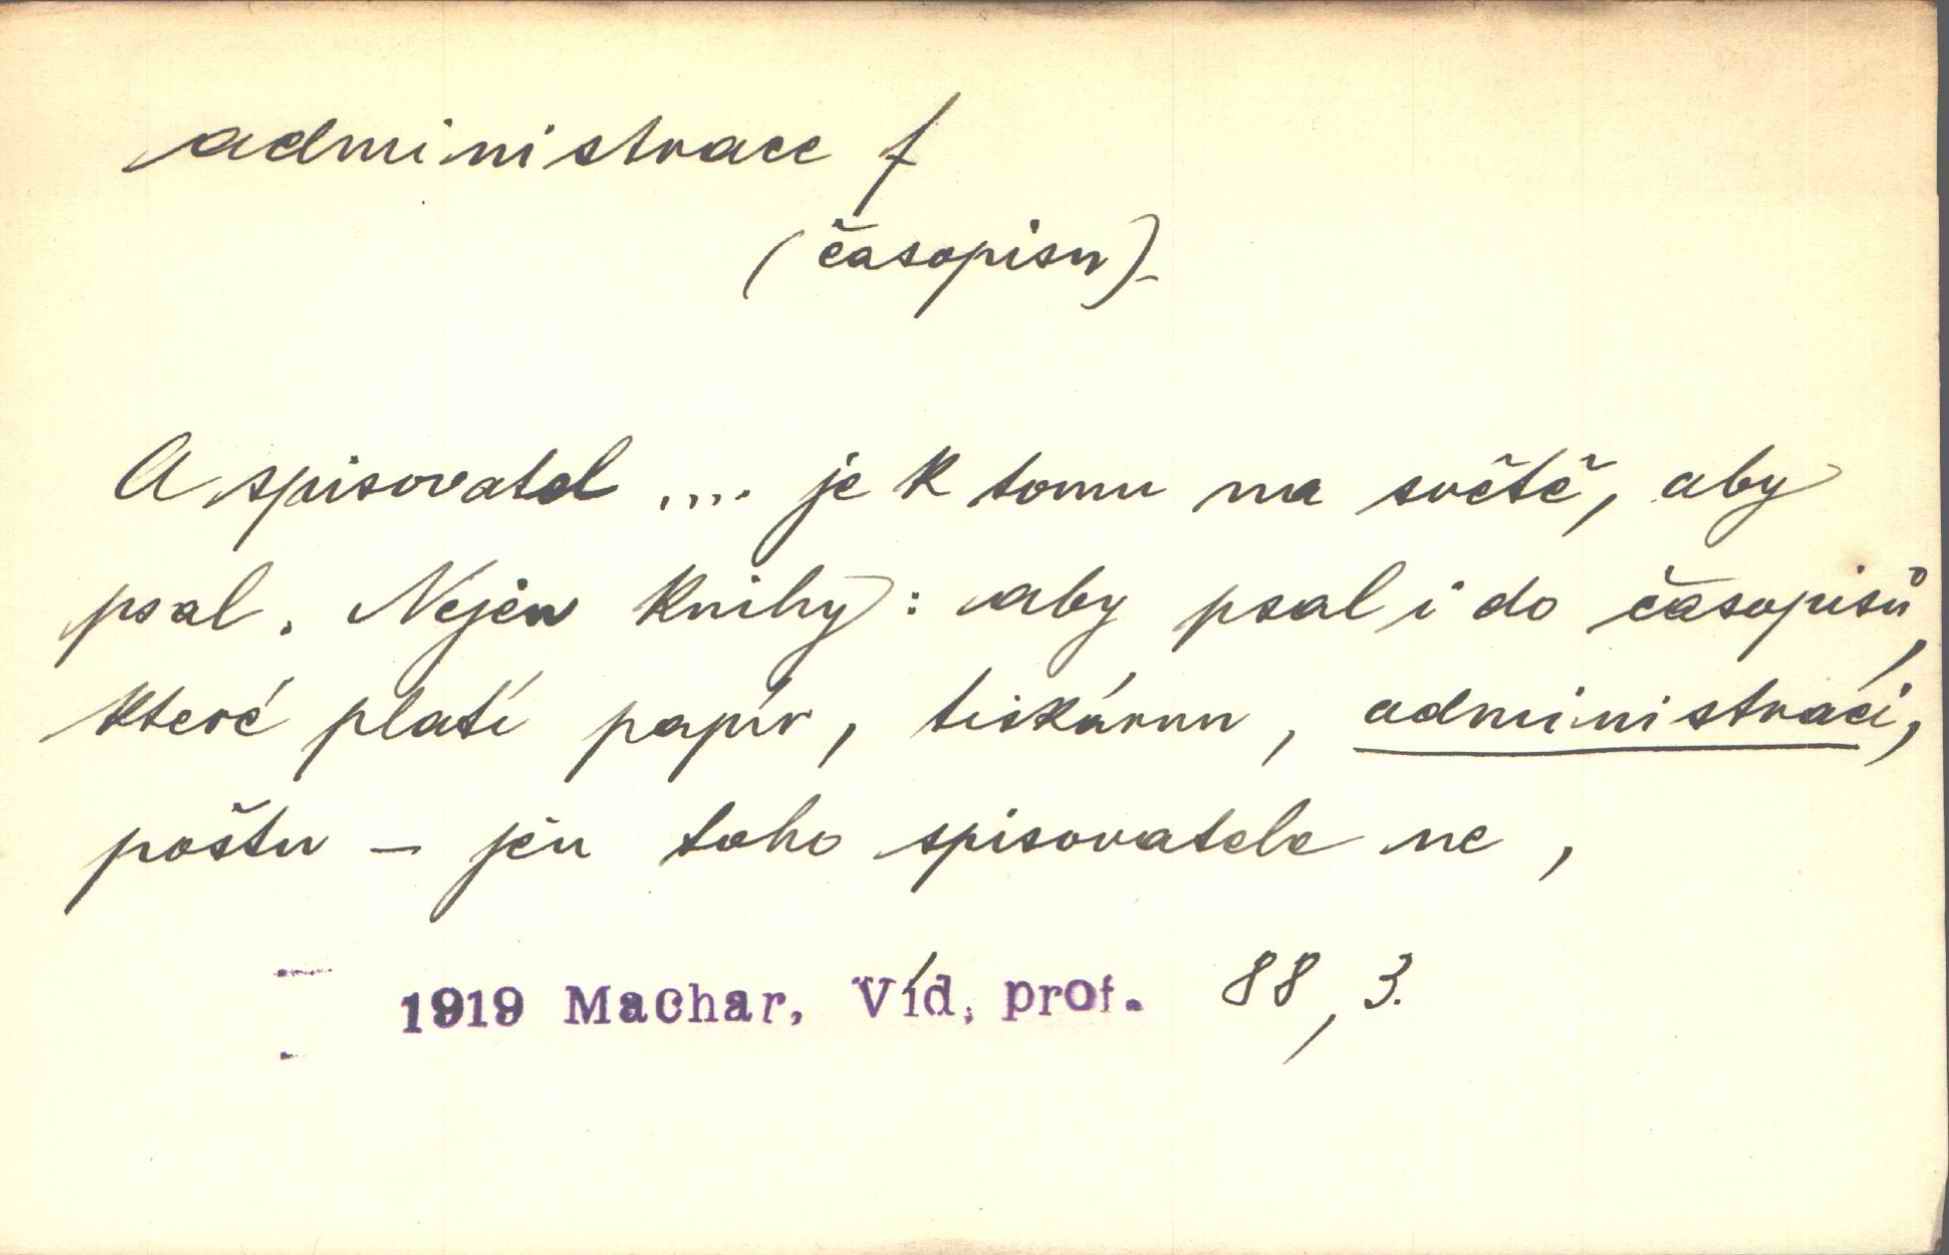 administrace f
(časopisu)
A spisovatel .... je k tomu na světě, aby
psal. Nejen knihy: aby psal i do časopisů,
které platí papír, tiskárnu, administraci,
poštu – jen toho spisovatele ne,
1919 Machar, Víd, prof. 88, 3.